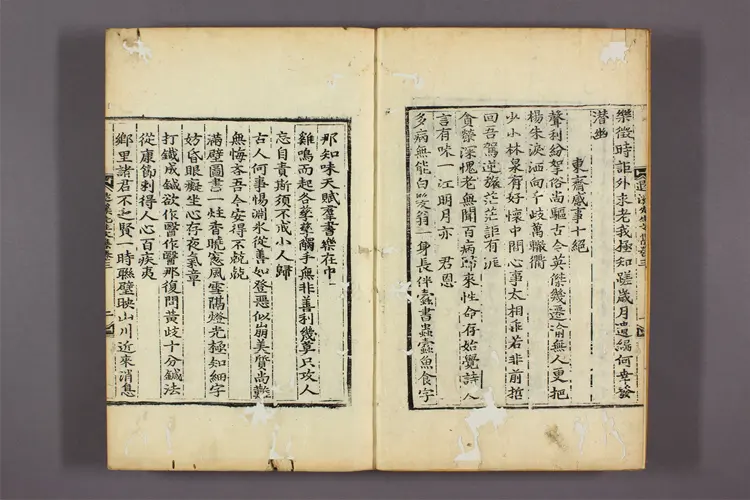 樂徵時詎外求老我極知蹉歲月遺編何幸發
潛幽
東齋感事十絕
聲利紛挐俗尚驅古今英傑幾遷渝無人更把
楊朱淚洒向千歧萬轍衢
少小林泉有好懷中間心事太相乖若非前椬
回吾駕逆旅茫茫詎有涯
貪榮深愧老無聞百病歸來性命存始覺詩人
言有味一江明月亦君恩
多病無能白髮翁一身長伴蠹書蟲蠹魚食字
那知味天賦羣書樂在中
雞鳴而起各孳孳觸手無非善利幾莫只攻人
忘自責斯須不戒小人歸
古人何事惕淵氷從善如登惡似崩美質尚難
無悔吝吾今安得不兢兢
滿壁圖書一炷香曉窓風雪隔燈光極知細字
妨昏眼癡坐心存夜氣章
打鐵成鍼欲作醫作醫那復問黃歧十分鍼法
從康節到得人心百疾夷
鄉里諸君不乏賢一時聯璧映山川近來消息